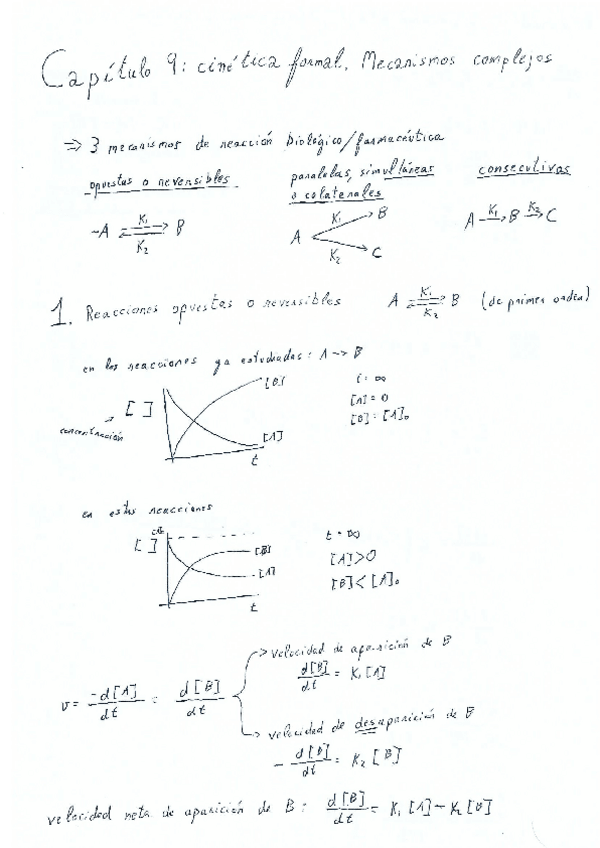 Capítulo 9: cinética formal. Mecanismos complejos
⇒ 3 mecanismos de reacción biológico/farmacéutica
opuestas o reversibles
paralelas, simultáneas
o colaterales
consecutivas
A ⇌ B
K₁
K₂
A
K₁ B
K₂ C
A K₁→ B K₂→ C
1. Reacciones opuestas o reversibles A ⇌ B (de primer orden)
K₁
K₂
en las reacciones ya estudiadas: A → B
[ ]
concentración
[B]
[A]
t
t = ∞
[A] = 0
[B] = [A]₀
en estas reacciones
[ ]
[B]
[A]
t
t = ∞
[A] > 0
[B] < [A]₀
v = -d[A]/dt = d[B]/dt
→ velocidad de aparición de B
d[B]/dt = K₁[A]
→ velocidad de desaparición de B
- d[B]/dt = K₂[B]
velocidad neta de aparición de B: d[B]/dt = K₁[A] - K₂[B]